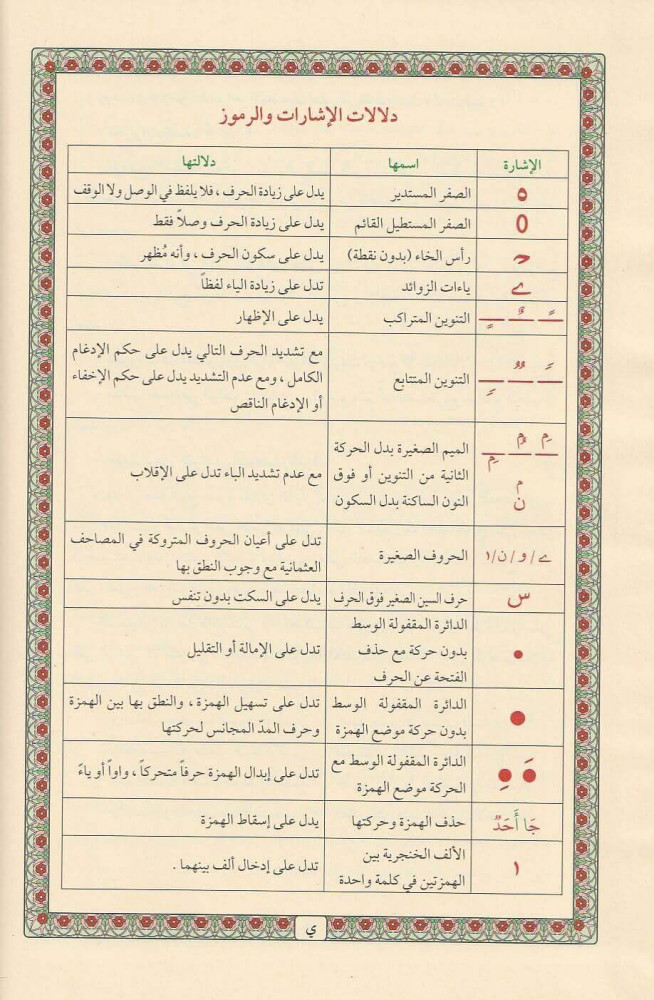 دلالات الإشارات والرموز
الإشارة اسمها دلالتها
ه الصفر المستدير يدل على زيادة الحرف ، فلا يلفظ في الوصل ولا الوقف
0 الصفر المستطيل القائم يدل على زيادة الحرف وصلاً فقط
رأس الخاء (بدون نقطة) يدل على سكون الحرف ، وأنه مُظهر
ے ياءات الزوائد تدل على زيادة الياء لفظاً
ـًـ ـٌـ ـٍـ التنوين المتراكب يدل على الإظهار
التنوين المتتابع
مع تشديد الحرف التالي يدل على حكم الإدغام
الكامل ، ومع عدم التشديد يدل على حكم الإخفاء
أو الإدغام الناقص
الميم الصغيرة بدل الحركة
الثانية من التنوين أو فوق
النون الساكنة بدل السكون
مع عدم تشديد الباء تدل على الإقلاب
ے/و/ن/١ الحروف الصغيرة
تدل على أعيان الحروف المتروكة في المصاحف
العثمانية مع وجوب النطق بها
س حرف السين الصغير فوق الحرف يدل على السكت بدون تنفس
● الدائرة المقفولة الوسط
بدون حركة مع حذف
الفتحة عن الحرف
تدل على الإمالة أو التقليل
● الدائرة المقفولة الوسط
بدون حركة موضع الهمزة
تدل على تسهيل الهمزة ، والنطق بها بين الهمزة
وحرف المدّ المجانس لحركتها
الدائرة المقفولة الوسط مع
الحركة موضع الهمزة
تدل على إبدال الهمزة حرفاً متحركاً ، واواً أو ياءً
جَا أَحَدٌ حذف الهمزة وحركتها يدل على إسقاط الهمزة
١ الألف الخنجرية بين
الهمزتين في كلمة واحدة
تدل على إدخال ألف بينهما .
ي